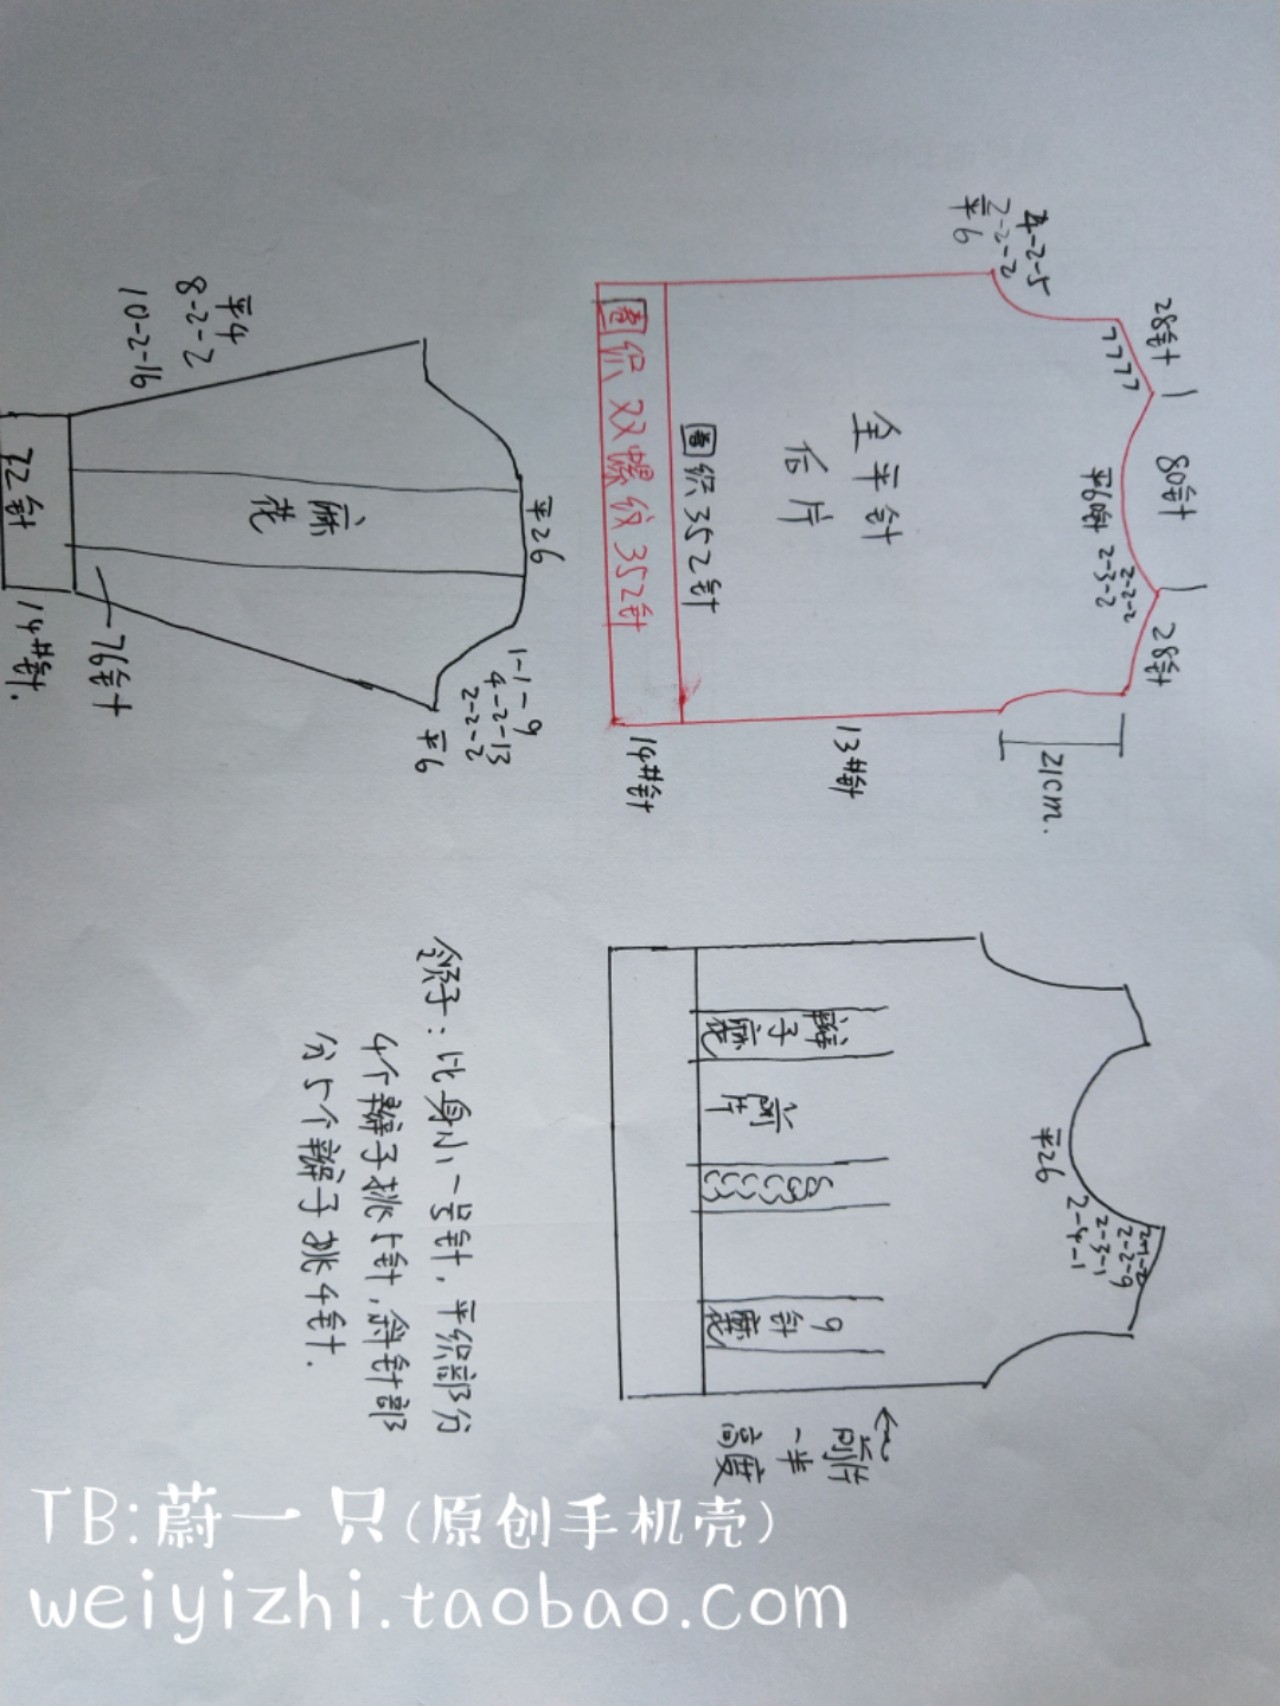 4-2-5
2-2-2
平6
28针
80针
28针
平60针
2-2-2
2-3-2
全平针
后片
圈织352针
圈织双螺纹352针
21cm.
13#针
14#针
平4
8-2-2
10-2-16
麻花
平26
1-1-6
4-2-13
2-2-2
平6
72针
76针
14#针.
平26
2-2-6
2-3-1
2-4-1
辫子麻花
前片
9针麻花
前片
一半
高度
领子:比身小一号针,平织部分
4个辫子挑5针,斜针部
分5个辫子挑4针.
TB:蔚一只(原创手机壳)
weiyizhi.taobao.com